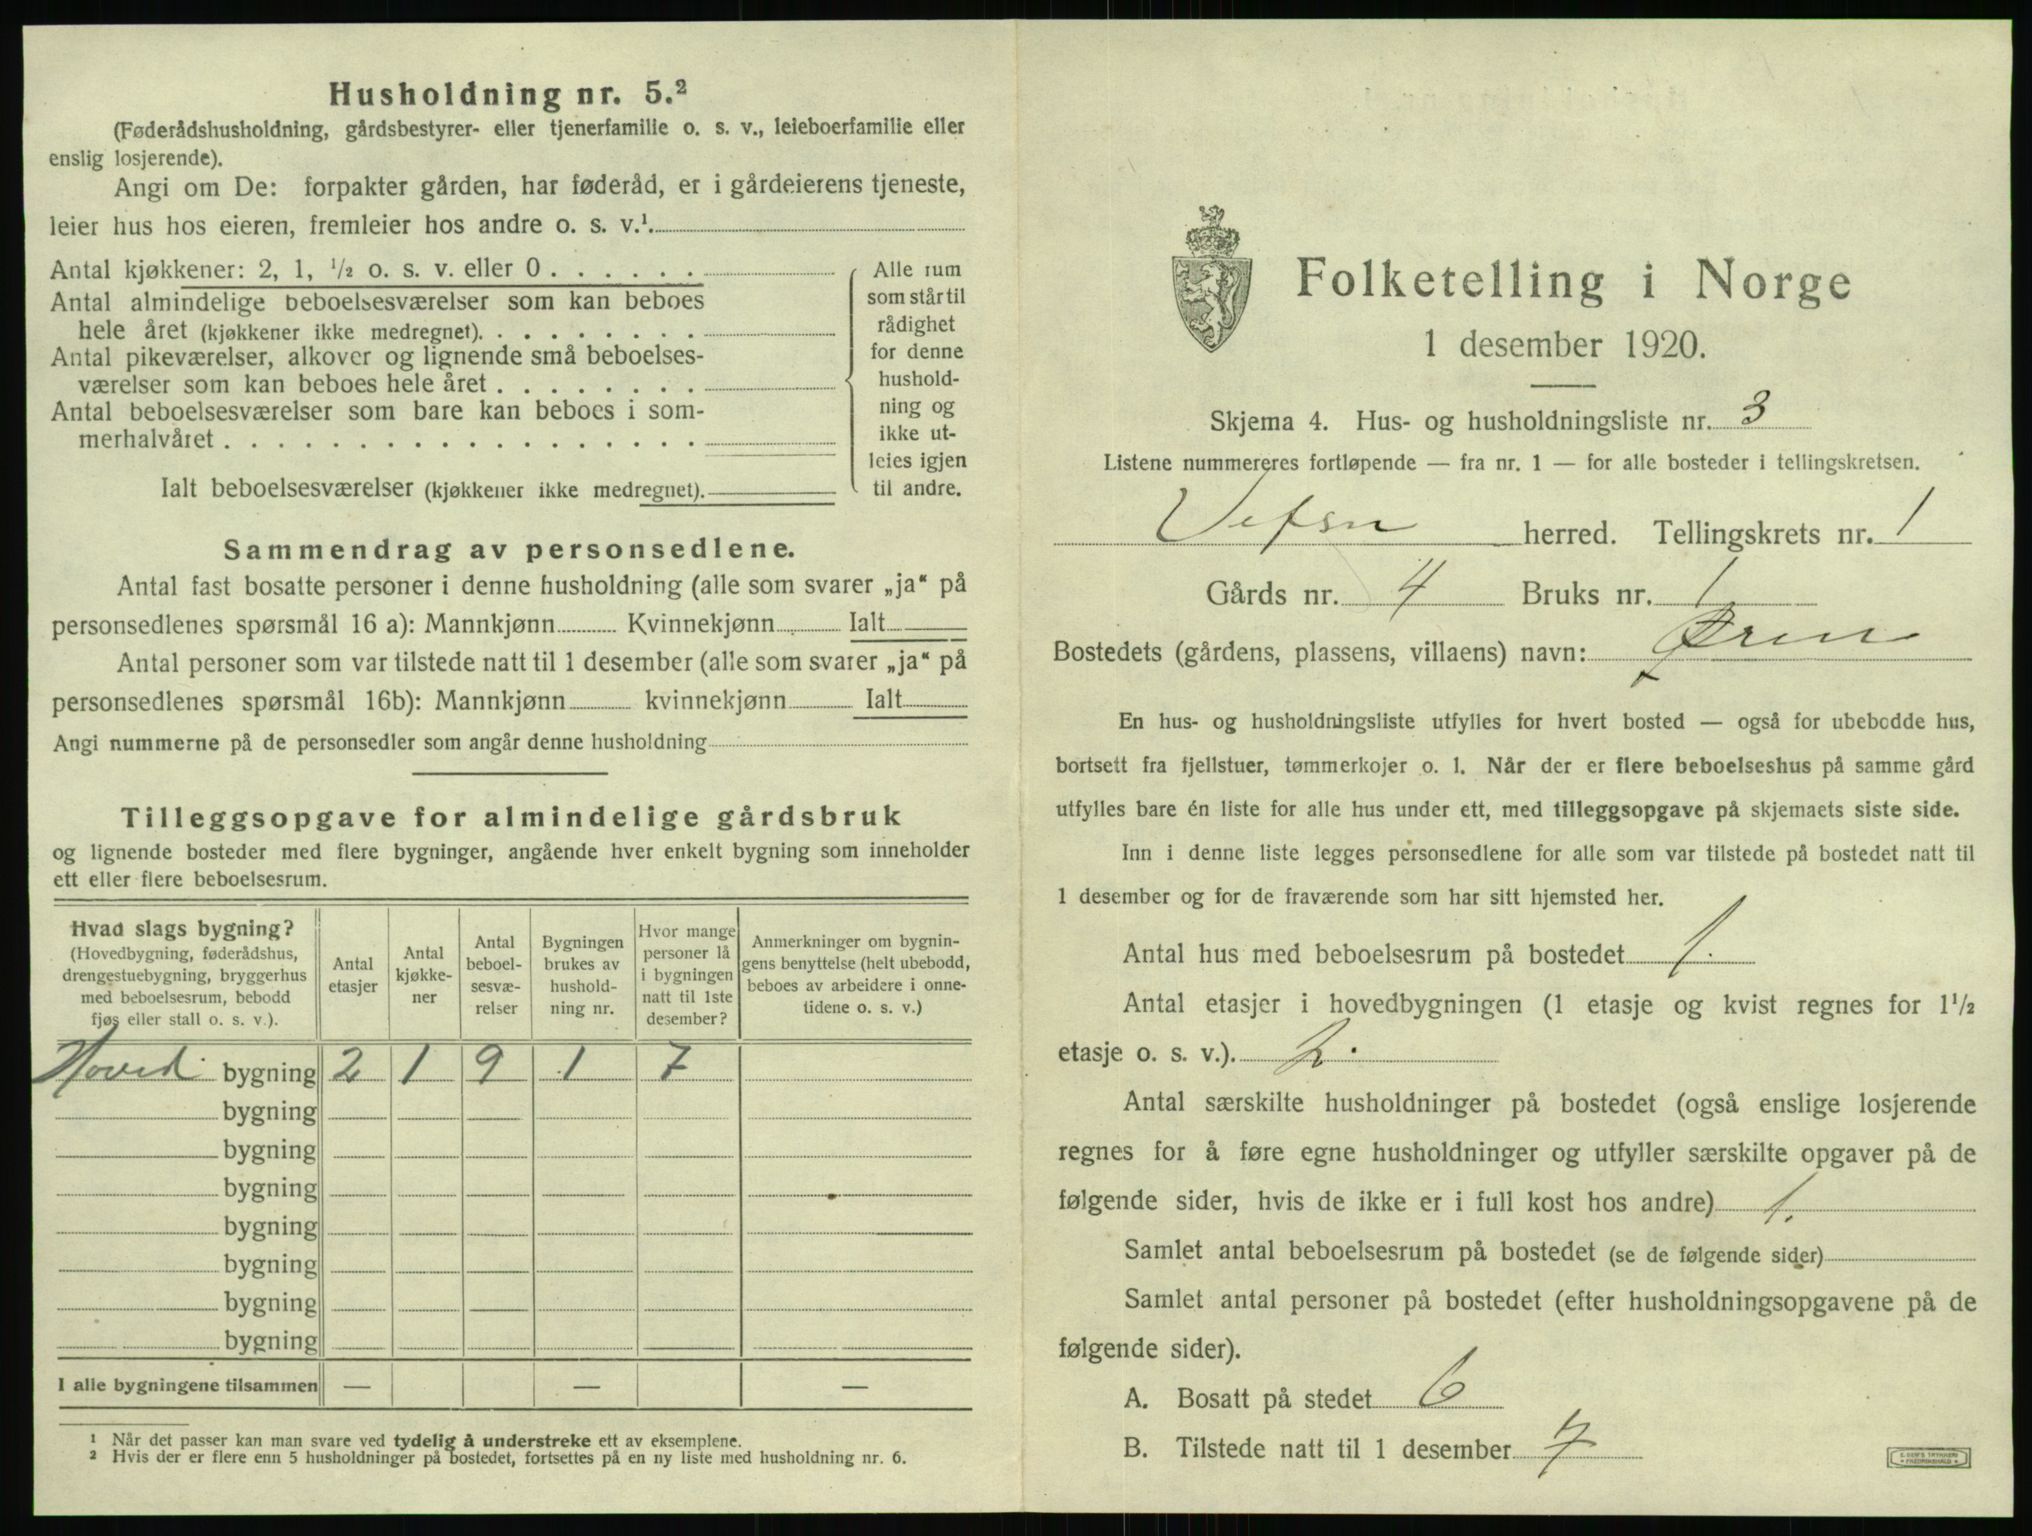 Husholdning nr. 5.²
(Føderådshusholdning, gårdsbestyrer- eller tjenerfamilie o. s. v., leieboerfamilie eller
enslig losjerende).
Angi om De: forpakter gården, har føderåd, er i gårdeierens tjeneste,
leier hus hos eieren, fremleier hos andre o. s. v.¹
Antal kjøkkener: 2, 1, ½ o. s. v. eller 0 . . . . . .
Antal almindelige beboelsesværelser som kan beboes
hele året (kjøkkener ikke medregnet). . . . . . . . .
Antal pikeværelser, alkover og lignende små beboelses-
værelser som kan beboes hele året . . . . . . . .
Antal beboelsesværelser som bare kan beboes i som-
merhalvåret . . . . . . . . . . . . . . . . . .
Ialt beboelsesværelser (kjøkkener ikke medregnet).
Alle rum
som står til
rådighet
for denne
hushold-
ning og
ikke ut-
leies igjen
til andre.
Sammendrag av personsedlene.
Antal fast bosatte personer i denne husholdning (alle som svarer „ja“ på
personsedlenes spørsmål 16 a): Mannkjønn Kvinnekjønn Ialt
Antal personer som var tilstede natt til 1 desember (alle som svarer „ja“ på
personsedlenes spørsmål 16b): Mannkjønn kvinnekjønn Ialt
Angi nummerne på de personsedler som angår denne husholdning
Tilleggsopgave for almindelige gårdsbruk
og lignende bosteder med flere bygninger, angående hver enkelt bygning som inneholder
ett eller flere beboelsesrum.
Hvad slags bygning?
(Hovedbygning, føderådshus,
drengestuebygning, bryggerhus
med beboelsesrum, bebodd
fjøs eller stall o. s. v.).
Antal
etasjer
Antal
kjøkke-
ner
Antal
beboel-
sesvæ-
relser
Bygningen
brukes av
hushold-
ning nr.
Hvor mange
personer lå
i bygningen
natt til 1ste
desember?
Anmerkninger om bygnin-
gens benyttelse (helt ubebodd,
beboes av arbeidere i onne-
tidene o. s. v.)
Hoved bygning 2 1 9 1 7
bygning
bygning
bygning
bygning
bygning
bygning
bygning
I alle bygningene tilsammen — — —
¹ Når det passer kan man svare ved tydelig å understreke ett av eksemplene.
² Hvis der er flere enn 5 husholdninger på bostedet, fortsettes på en ny liste med husholdning nr. 6.
Folketelling i Norge
1 desember 1920.
Skjema 4. Hus- og husholdningsliste nr. 3
Listene nummereres fortløpende — fra nr. 1 — for alle bosteder i tellingskretsen.
Vefsn herred. Tellingskrets nr. 1
Gårds nr. 4 Bruks nr. 1
Bostedets (gårdens, plassens, villaens) navn: Øren
En hus- og husholdningsliste utfylles for hvert bosted — også for ubebodde hus,
bortsett fra fjellstuer, tømmerkojer o. l. Når der er flere beboelseshus på samme gård
utfylles bare én liste for alle hus under ett, med tilleggsopgave på skjemaets siste side.
Inn i denne liste legges personsedlene for alle som var tilstede på bostedet natt til
1 desember og for de fraværende som har sitt hjemsted her.
Antal hus med beboelsesrum på bostedet 1.
Antal etasjer i hovedbygningen (1 etasje og kvist regnes for 1½
etasje o. s. v.). 2.
Antal særskilte husholdninger på bostedet (også enslige losjerende
regnes for å føre egne husholdninger og utfyller særskilte opgaver på de
følgende sider, hvis de ikke er i full kost hos andre) 1.
Samlet antal beboelsesrum på bostedet (se de følgende sider)
Samlet antal personer på bostedet (efter husholdningsopgavene på de
følgende sider).
A. Bosatt på stedet 6
B. Tilstede natt til 1 desember 7